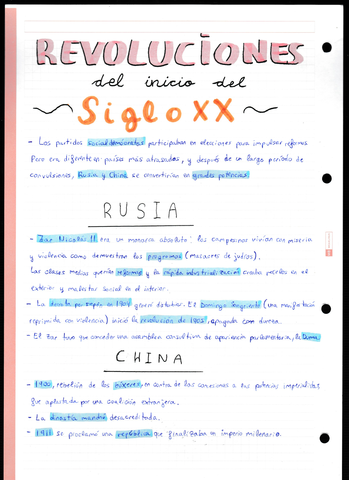 REVOLUCIONES
del inicio del
Siglo XX
- Los partidos socialdemócratas participaban en elecciones para impulsar reformas.
Pero era diferente en países más atrasados, y después de un largo período de
convulsiones, Rusia y China se convertirían en grandes potencias.
RUSIA
- Zar Nicolás II era un monarca absoluto: los campesinos vivían con miseria
y violencia como demuestran los progromos (masacres de judíos).
Las clases medias querían reformas y la rápida industrialización creaba
exterior y malestar social en el interior.
- La derrota por Japón en 1904 generó El Domingo Sangriento (una manifestació
reprimida con violencia) inició la revolución de 1905, apagada con dureza.
- El Zar tuvo que conceder una asamblea consultiva de apariencia parlamentaria, la Duma.
CHINA
- 1900, rebelión de los bóxers, en contra de las concesiones a las potencias imperialistas,
que aplastada por una coalición extranjera.
- La dinastía manchú desacreditada.
- 1911 se proclamó una república que finalizaba un imperio milenario.